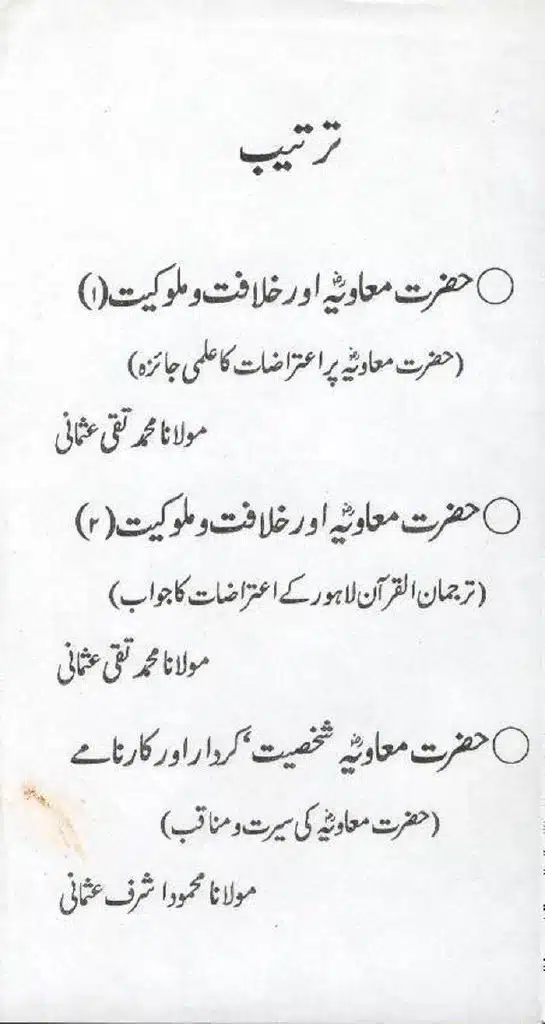 ترتیب
○ حضرت معاویہؓ اور خلافت و ملوکیت (۱)
(حضرت معاویہؓ پر اعتراضات کا علمی جائزہ)
مولانا محمد تقی عثمانی
○ حضرت معاویہؓ اور خلافت و ملوکیت (۲)
(ترجمان القرآن لاہور کے اعتراضات کا جواب)
مولانا محمد تقی عثمانی
○ حضرت معاویہؓ شخصیت، کردار اور کارنامے
(حضرت معاویہؓ کی سیرت و مناقب)
مولانا محمود اشرف عثمانی